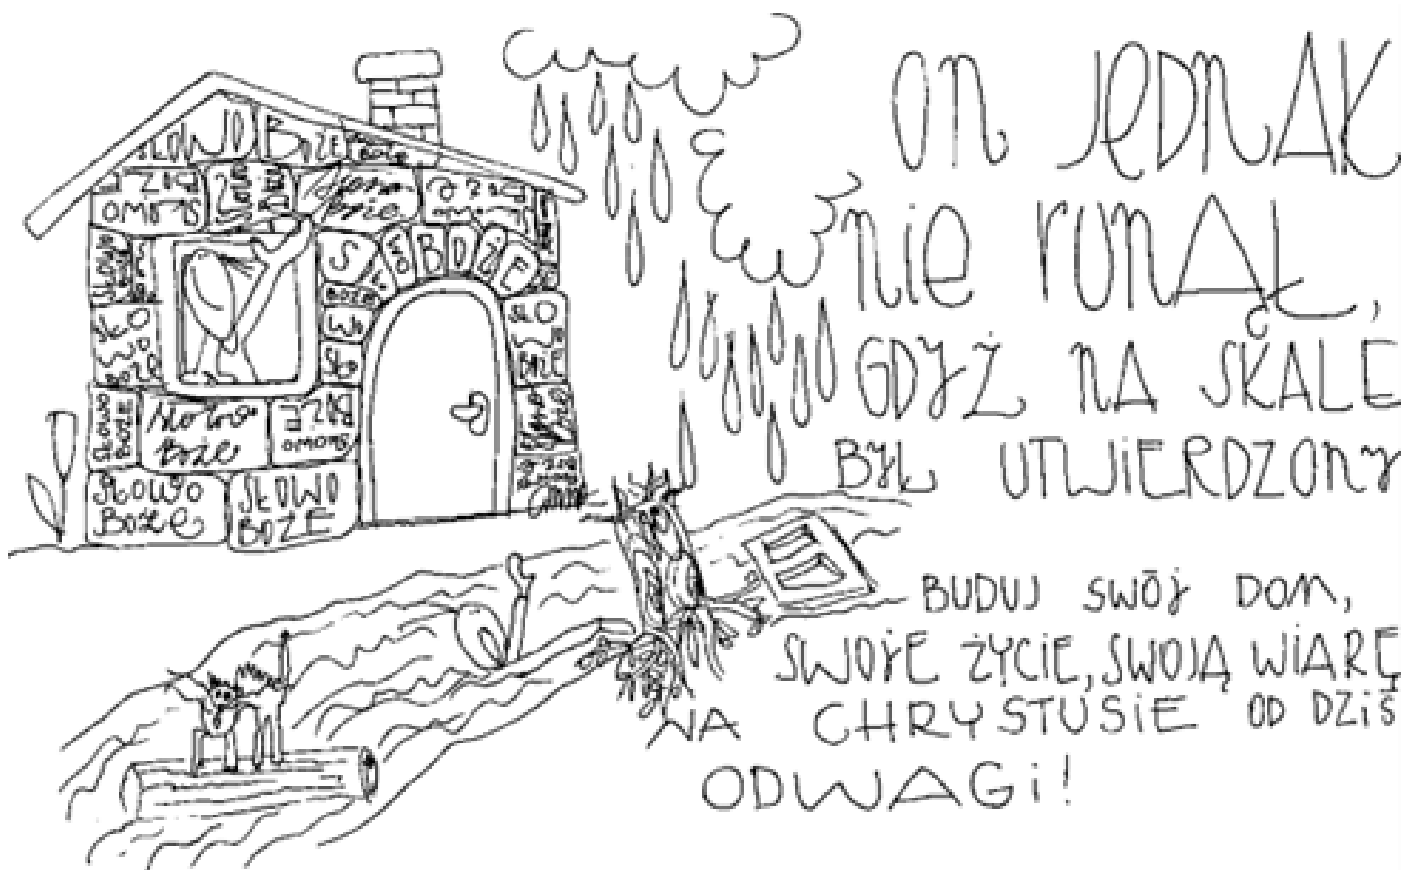 SŁOWO BOŻE
SŁOWO
BOŻE
SŁOWO
BOŻE
Słowo
Boże
SŁOWO
BOŻE
SŁOWO
BOŻE
SŁOWO
BOŻE
ON JEDNAK
nie runął,
GDYŻ NA SKALE
BYŁ UTWIERDZONY
BUDUJ SWÓJ DOM,
SWOJE ŻYCIE, SWOJĄ WIARĘ
NA CHRYSTUSIE OD DZIŚ
ODWAGI!